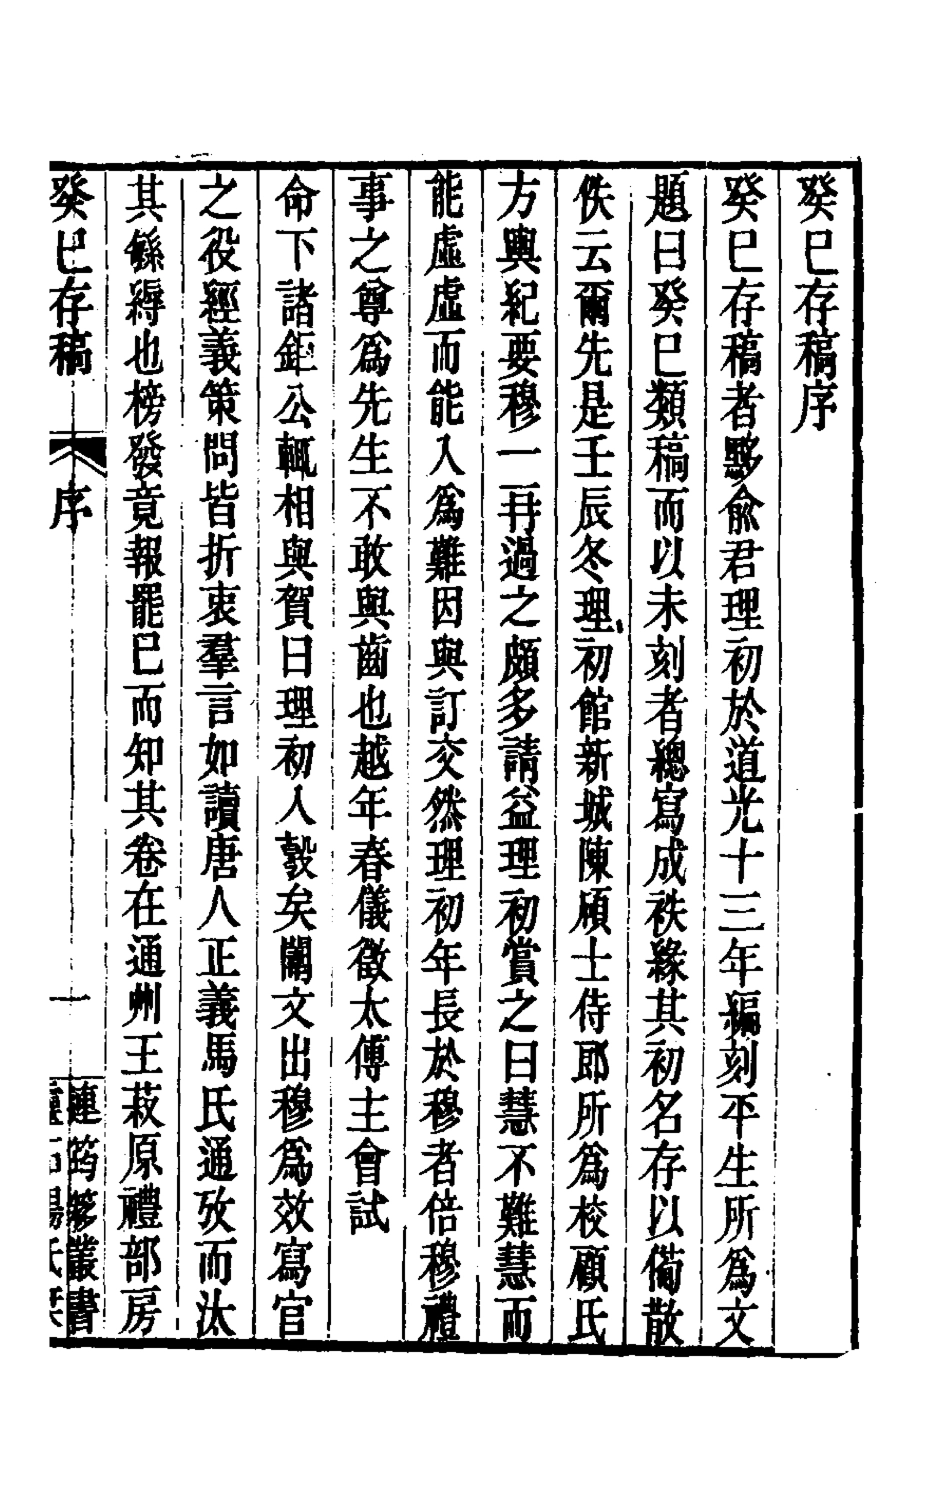 癸巳存稿序
癸巳存稿者黟俞君理初於道光十三年編刻平生所爲文
題曰癸巳類稿而以未刻者總寫成袟緣其初名存以僃散
佚云爾先是壬辰冬理初館新城陳碩士侍郎所爲校顧氏
方輿紀要穆一再過之頗多請益理初賞之曰慧不難慧而
能虛虛而能入爲難因與訂交然理初年長於穆者倍穆禮
事之尊爲先生不敢與齒也越年春儀徵太傅主會試
命下諸鉅公輒相與賀曰理初入彀矣闈文出穆爲效寫官
之役經義策問皆折衷羣言如讀唐人正義馬氏通攷而汰
其繇縟也榜發竟報罷已而知其卷在通州王菽原禮部房
癸巳存稿
序
一
連筠簃叢書